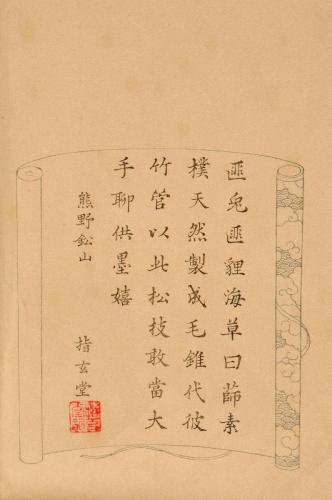 匪兔匪貍海草曰蒒素
樸天然製成毛錐代彼
竹管以此松枝敢當大
手聊供墨嬉
熊野鈆山
指玄堂